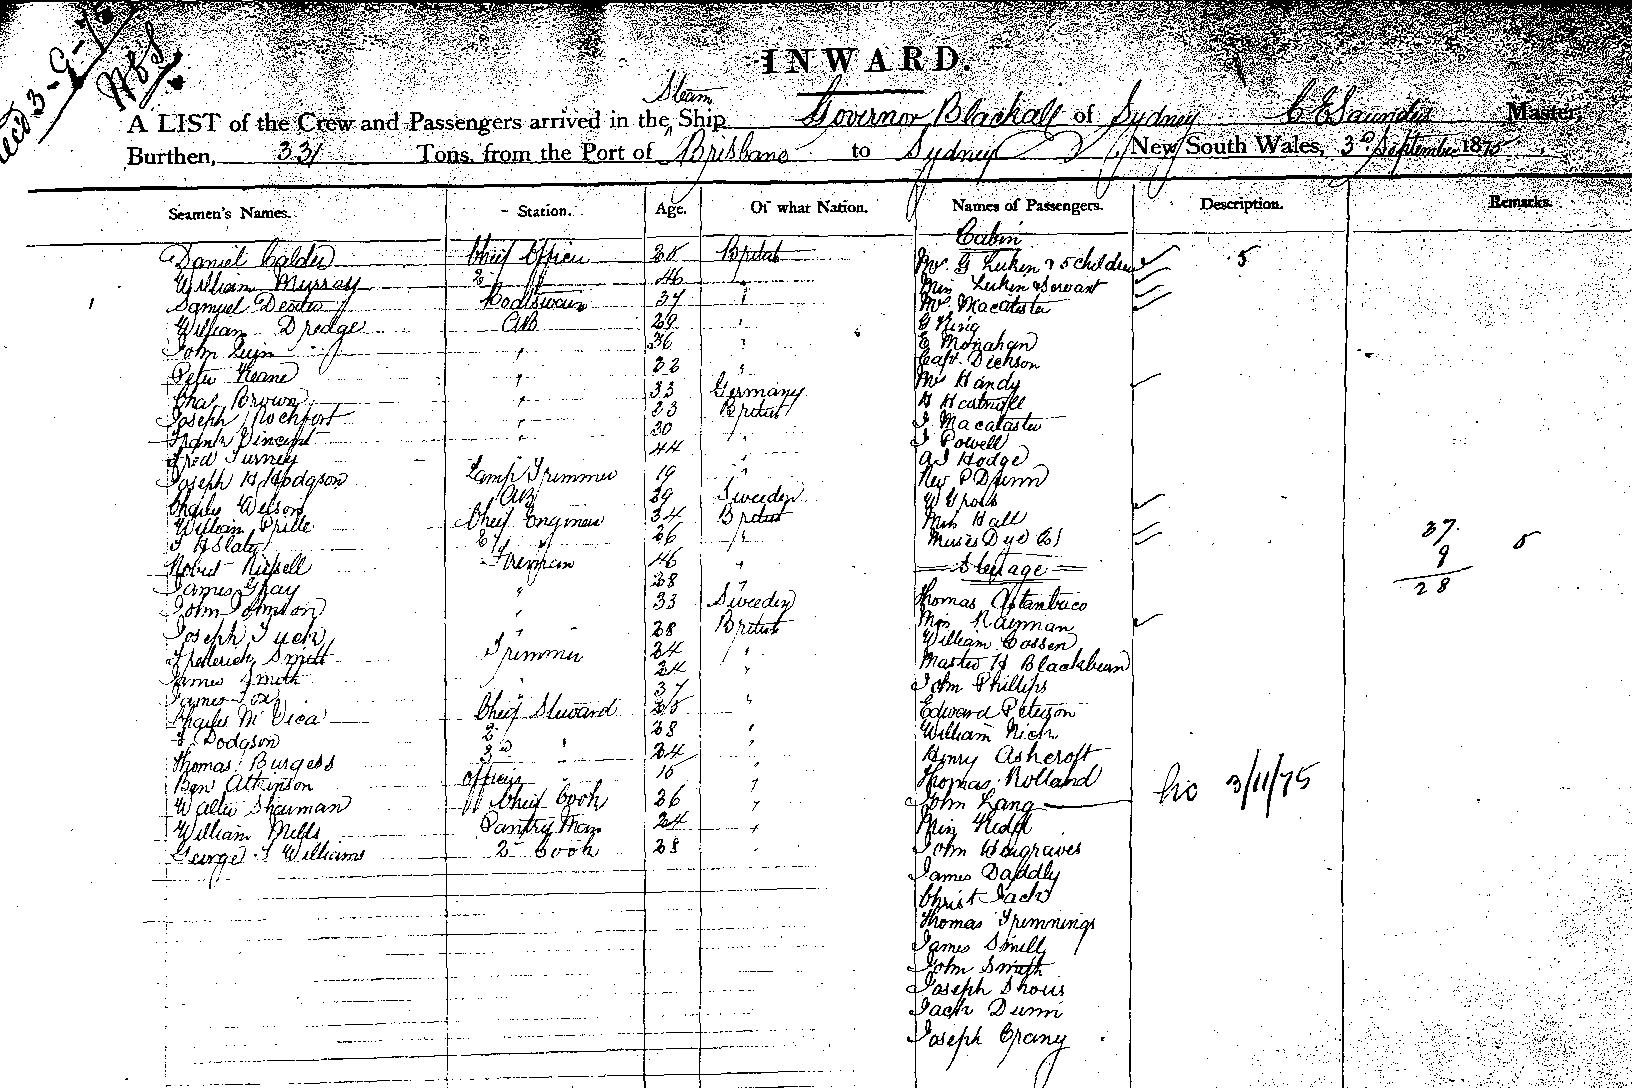 Recd 3-9-75
INWARD.
A LIST of the Crew and Passengers arrived in the Steam Ship Governor Blackall of Sydney C E Saunders Master,
Burthen, 331 Tons, from the Port of Brisbane to Sydney New South Wales, 3d September 1875
Seamen's Names. Station. Age. Of what Nation. Names of Passengers. Description. Remarks.
Cabin
Daniel Calder Chief Officer British
Mr. G Luken & 5 children 5
William Murray 2 46 "
Miss Luken & Servant
Samuel Dexter Boatswain 37 "
Mr Macalister
William Dredge AB 29 "
G King
John 36 "
E Monahan
Capt. Dickson
Peter Keane " 22 "
Mrs Handy
Chas Brown " 33 Germany
H Hartnell
Joseph Rochfort " 23 British
J Macalaster
Frank Vincent " 30 "
J Powell
Fred Turney 44
A J Hodge
Joseph H Hodgson Lamp Trimmer 19 "
Rev P Dunn
Charles Wilson AB 29 Sweeden
W Gross
William Prille Chief Engineer 34 British
Miss Hall
T H Slater 2 26 "
Misses Dyd (2) 37
9
28
Robert Russell Fireman 46 "
Steerage
James Gray " 28
John Johnson " 33 Sweeden
Thomas Astanbuco
Joseph Tuck 28 British
Mrs Rayman
William Cossen
Frederick Smith Trimmer 24 "
Master H Blackburn
James Smith " 24 "
John Phillips
James Fox 37
Charles McVica Chief Steward "
Edward Peterson
J. Dodgson 2 28 "
William Nich
Thomas Burgess 3d " 24 "
Henry Ashcroft
Ben Atkinson Officers "
Thomas Rolland
Walter Sharman Chief Cook 26 "
John Lang 3/11/75
William Mills Pantry Man 24 "
Miss Kidd
George J Williams 2 Cook 28 "
John Hargraves
James Daddly
Christ Jack
Thomas Tremnings
James Smill
John Smith
Joseph Shous
Jack Dunn
Joseph Crany